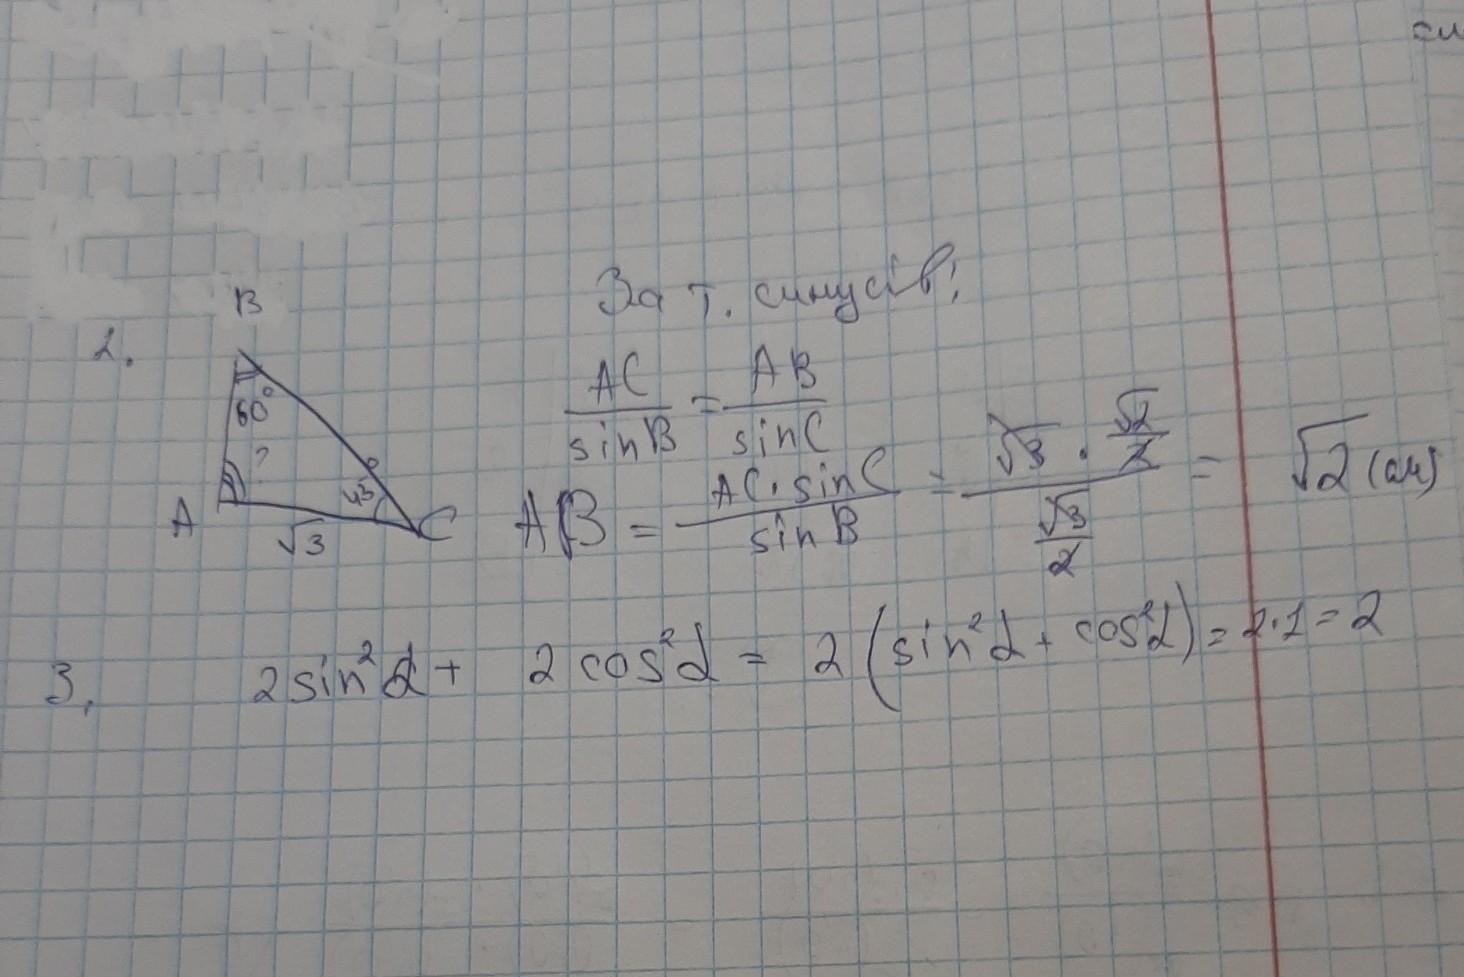 2.
B
60°
?
A
45°
C
√3
За т. синусів:
AC/sinB = AB/sinC
AB = AC · sinC / sinB = √3 · √2/2 / √3/2 = √2 (см)
3. 2sin²α + 2cos²α = 2(sin²α + cos²α) = 2·1 = 2